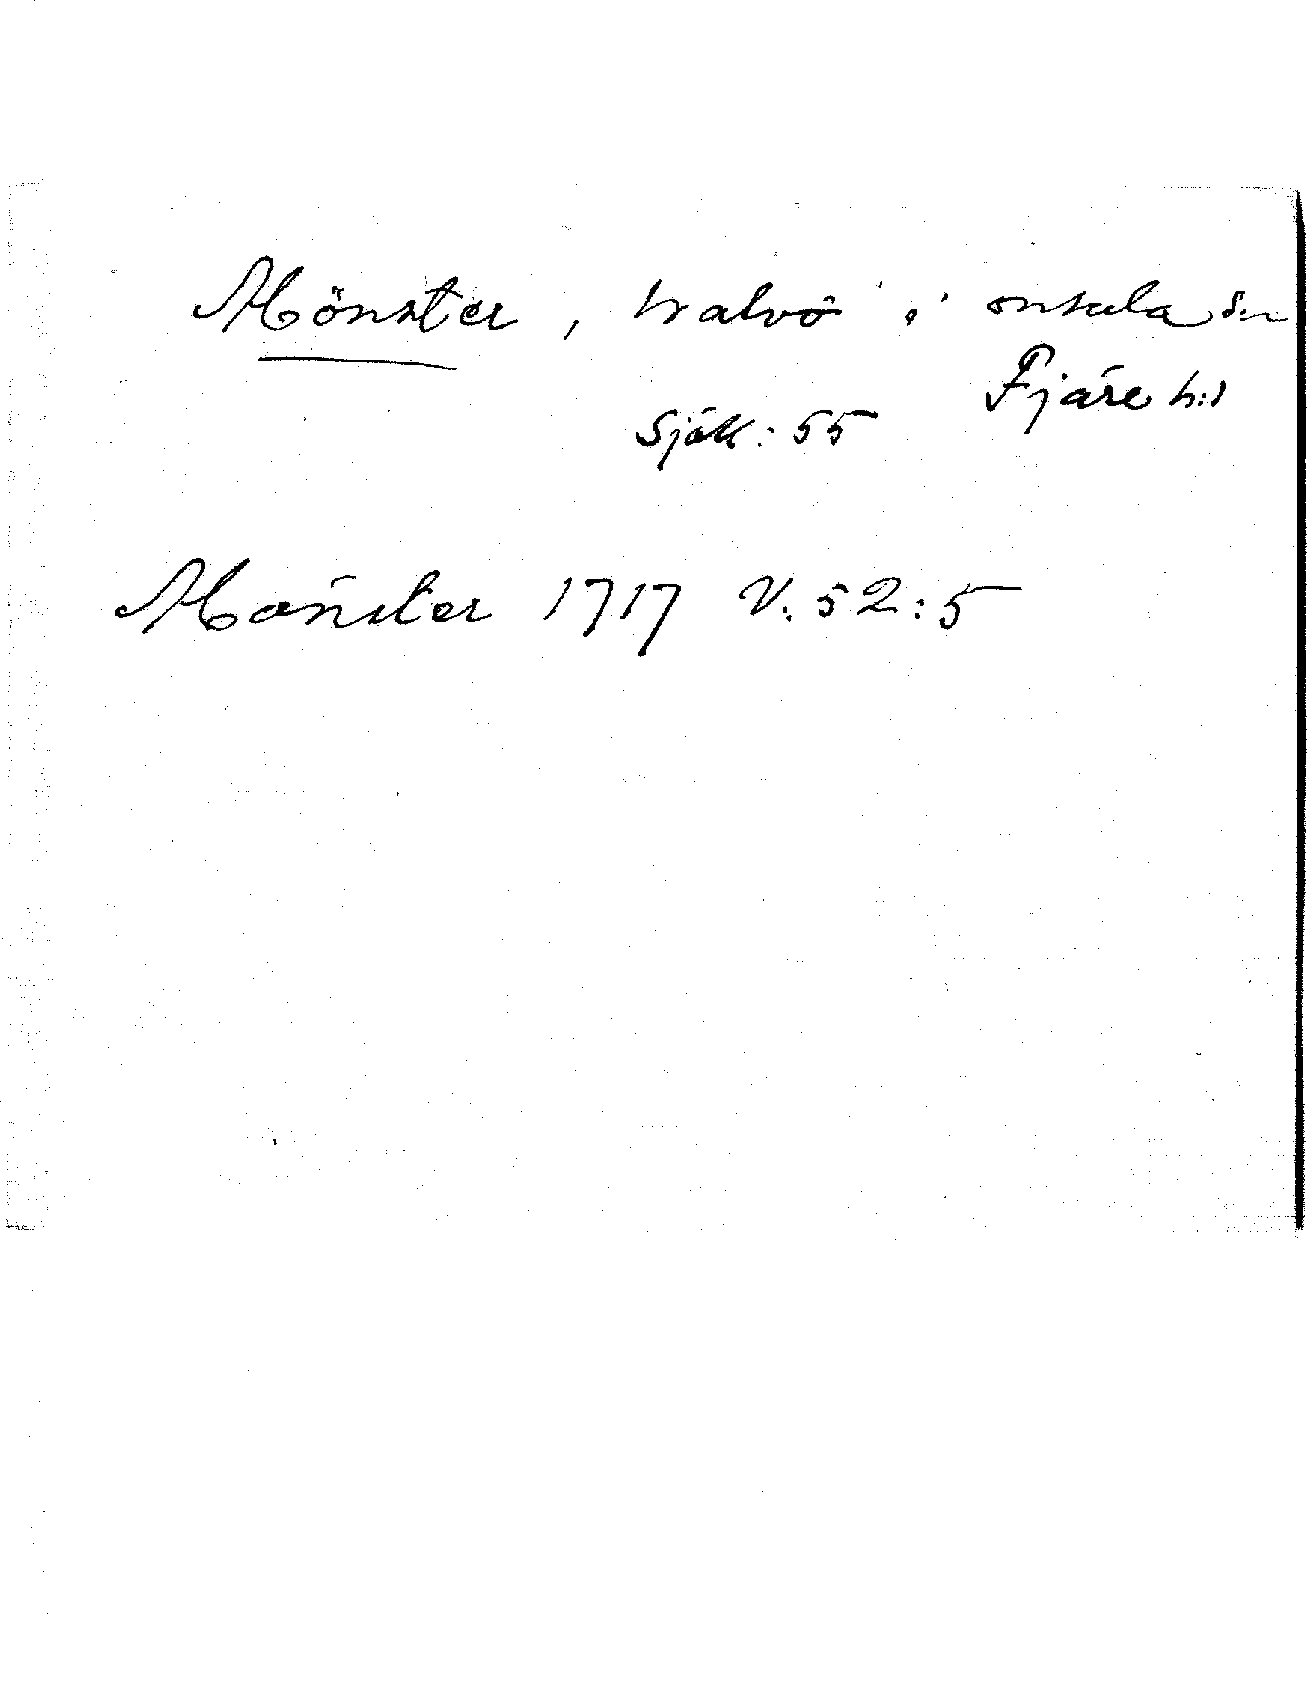 Mönster, halvö i onsala s:n
Fjäre h:d
Sjök: 55
Mönster 1717 V. 52:5